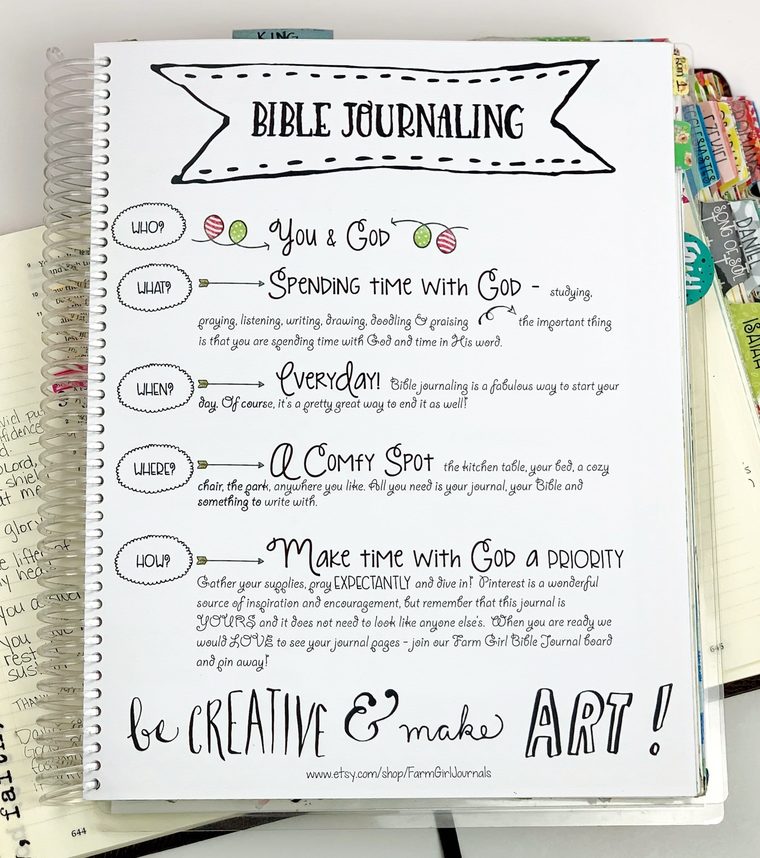 KING
BIBLE JOURNALING
WHO?
You & God
WHAT?
Spending time with God - studying,
praying, listening, writing, drawing, doodling & praising the important thing
is that you are spending time with God and time in His word.
WHEN?
Everyday! Bible journaling is a fabulous way to start your
day. Of course, it's a pretty great way to end it as well!
WHERE?
A Comfy Spot the kitchen table, your bed, a cozy
chair, the park, anywhere you like. All you need is your journal, your Bible and
something to write with.
HOW?
Make time with God a PRIORITY
Gather your supplies, pray EXPECTANTLY and dive in! Pinterest is a wonderful
source of inspiration and encouragement, but remember that this journal is
YOURS and it does not need to look like anyone else's. When you are ready we
would LOVE to see your journal pages - join our Farm Girl Bible Journal board
and pin away!
be CREATIVE & make ART!
www.etsy.com/shop/FarmGirlJournals
ECCLESIASTES
EZEKIEL
SONG OF SOL
DANIEL
ISAIAH
glory
you a
rest
644
645